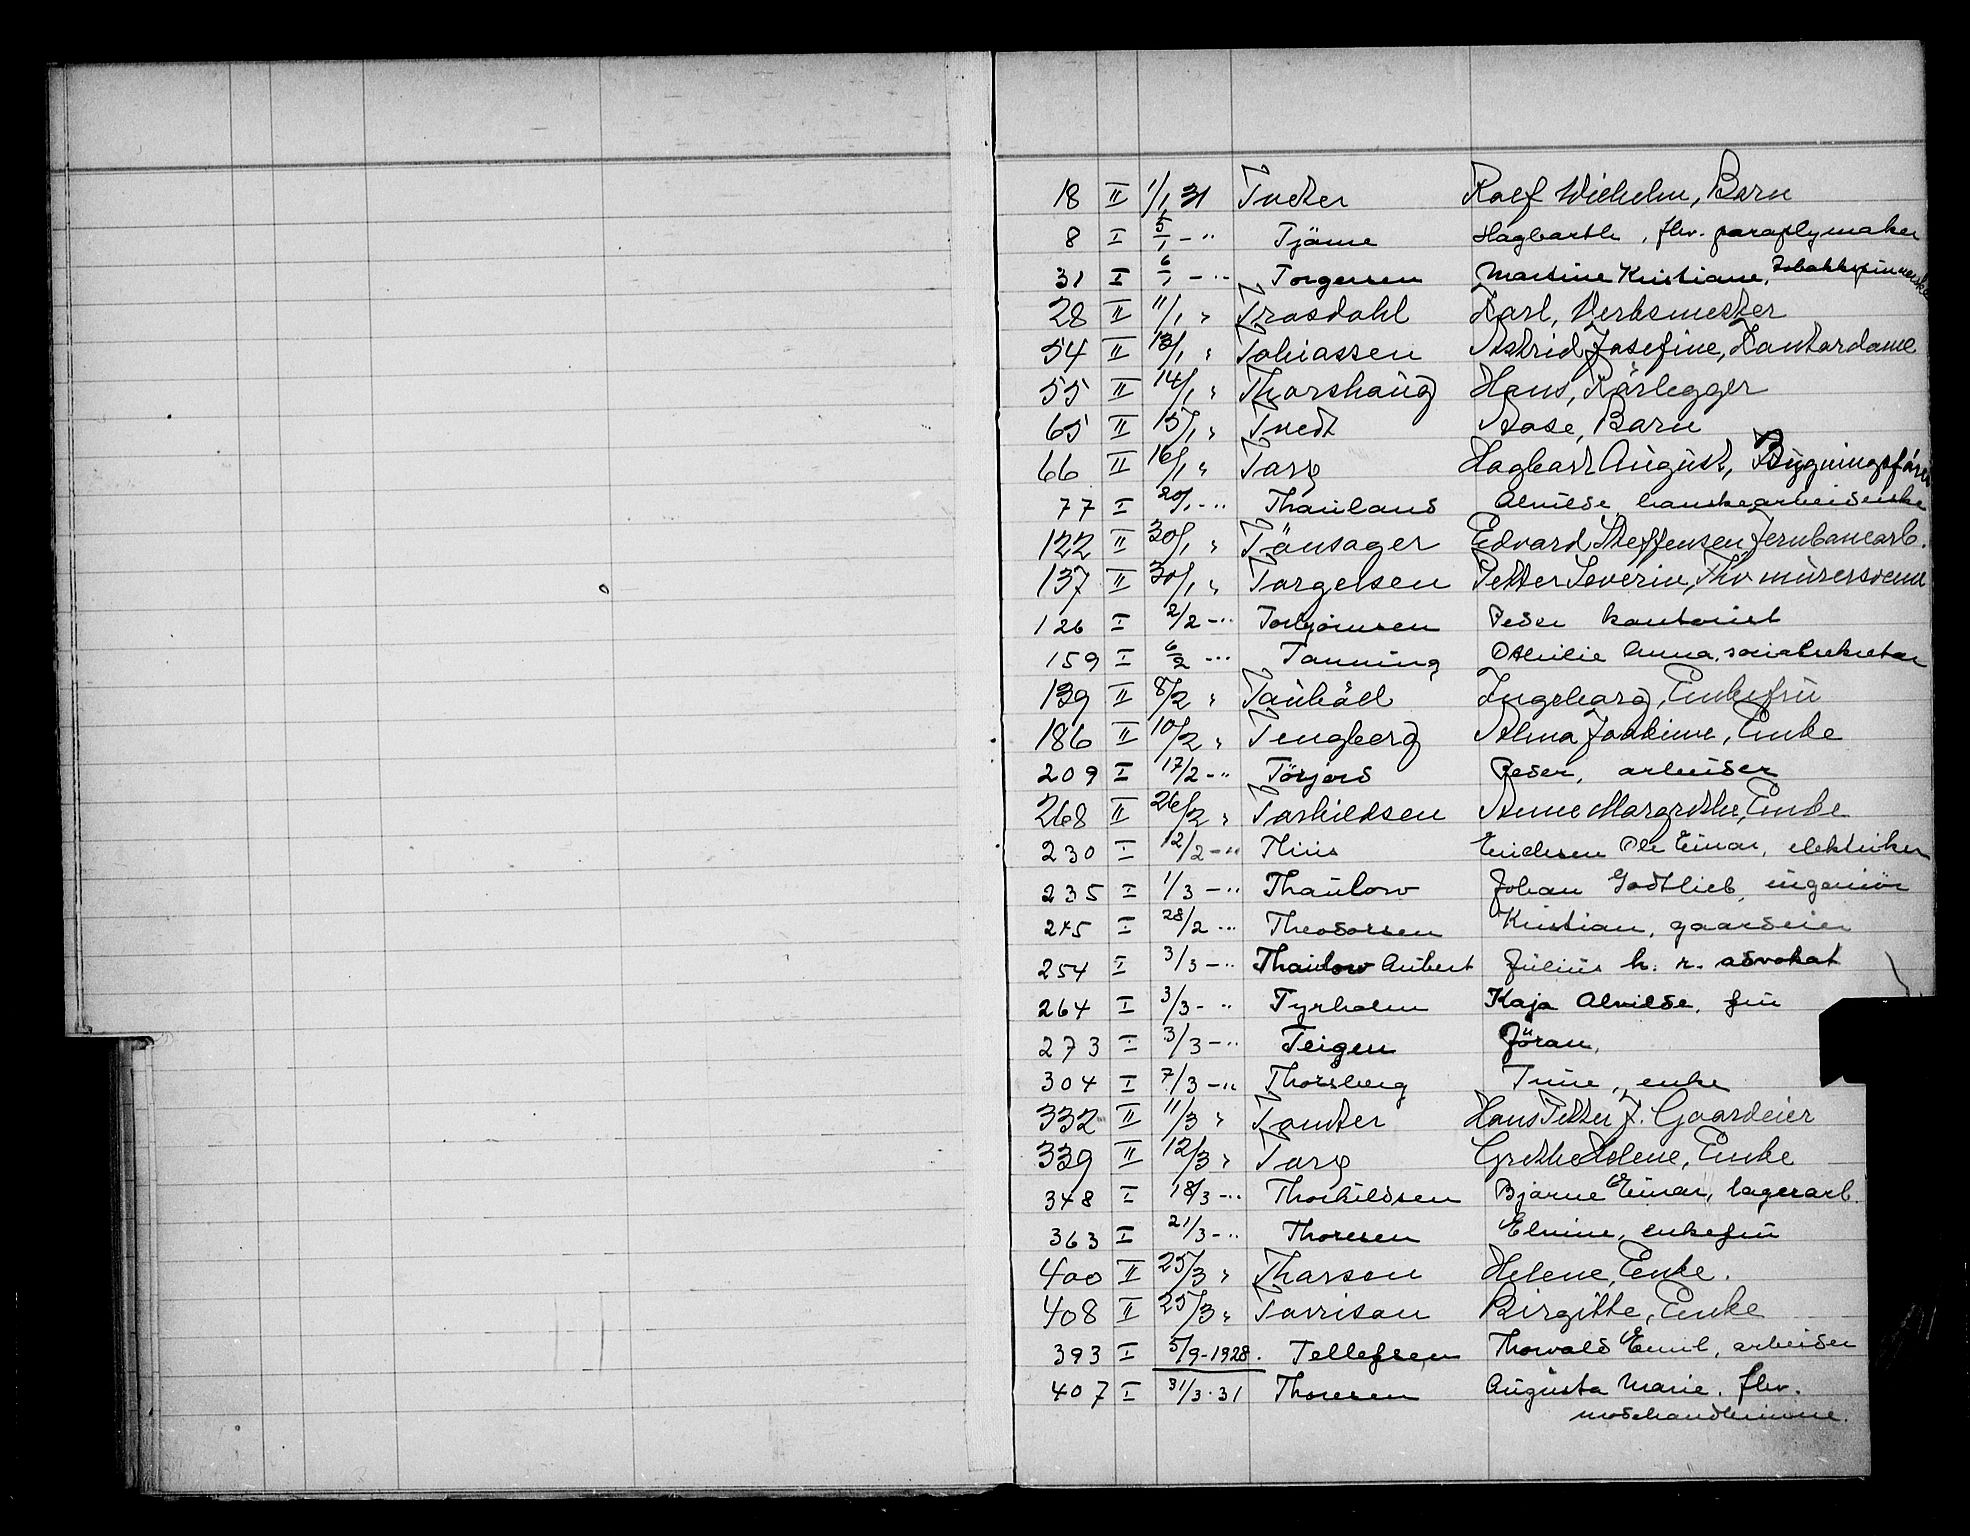 18 II 1/1 31 Tveter Rolf Wilhelm, Barn
8 I 5/1 - " Tjöme Hagbarth, fhv. paraplymaker
31 I 6/1 - " Torgersen Martine Kristiane, Tobakkspinnerske
28 II 11/1 " Trosdahl Karl, Verksmester
54 II 13/1 " Tobiassen Astrid Josefine, Kontordame
55 II 14/1 " Thorshaug Hans, Rörlegger
65 II 15/1 " Tvedt Aase, Barn
66 II 16/1 " Torp Hagbart August, Bygningsför
77 I 20/1 - " Thaulans Alvilde hanskearbeiderske
122 II 30/1 " Tönsager Edvard Steffensen Jernbanearb.
137 II 30/1 " Torgersen Petter Severin, Fhv murersvenn
126 I 2/2 - " Torbjörnsen Peder kontorist
159 I 6/2 - " Tanning Othilie Anna, socialsekretær
139 II 8/2 " Tauböll Ingeborg, Enkefru
186 II 10/2 " Tengberg Alma Joakime, Enke
209 I 17/2 - " Törjord Peder, arbeider
268 II 26/2 " Torkildsen Anne Margrethe, Enke
230 I 12/2 - " Thiis Erichsen Ole Einar, elektriker
235 I 1/3 - " Thaulow Johan Godtlieb, ingeniör
245 I 28/2 - " Theodorsen Kristian, gaardeier
254 I 3/3 - " Thaulow Aubert Julius h. r. advokat
264 I 3/3 - " Tyrholm Kaja Alvilde, fru
273 I 3/3 - " Teigen Jöran,
304 I 7/3 - " Thorsberg Trine, enke
332 II 11/3 " Tomter Hans Petter J. Gaardeier
339 II 12/3 " Torp Grethe Helene, Enke
348 I 18/3 - " Thorkildsen Bjarne Einar, lagerarb.
363 I 21/3 - " Thoresen Elvine, enkefru
400 II 25/3 " Tharsen Helene, Enke.
408 II 25/3 " Torrison Birgitte, Enke
393 I 5/9 - 1928. Tellefsen Thorvald Emil, arbeider
407 I 31/3 - 31 Thoresen Augusta Marie, fhv.
motehandlerinne.